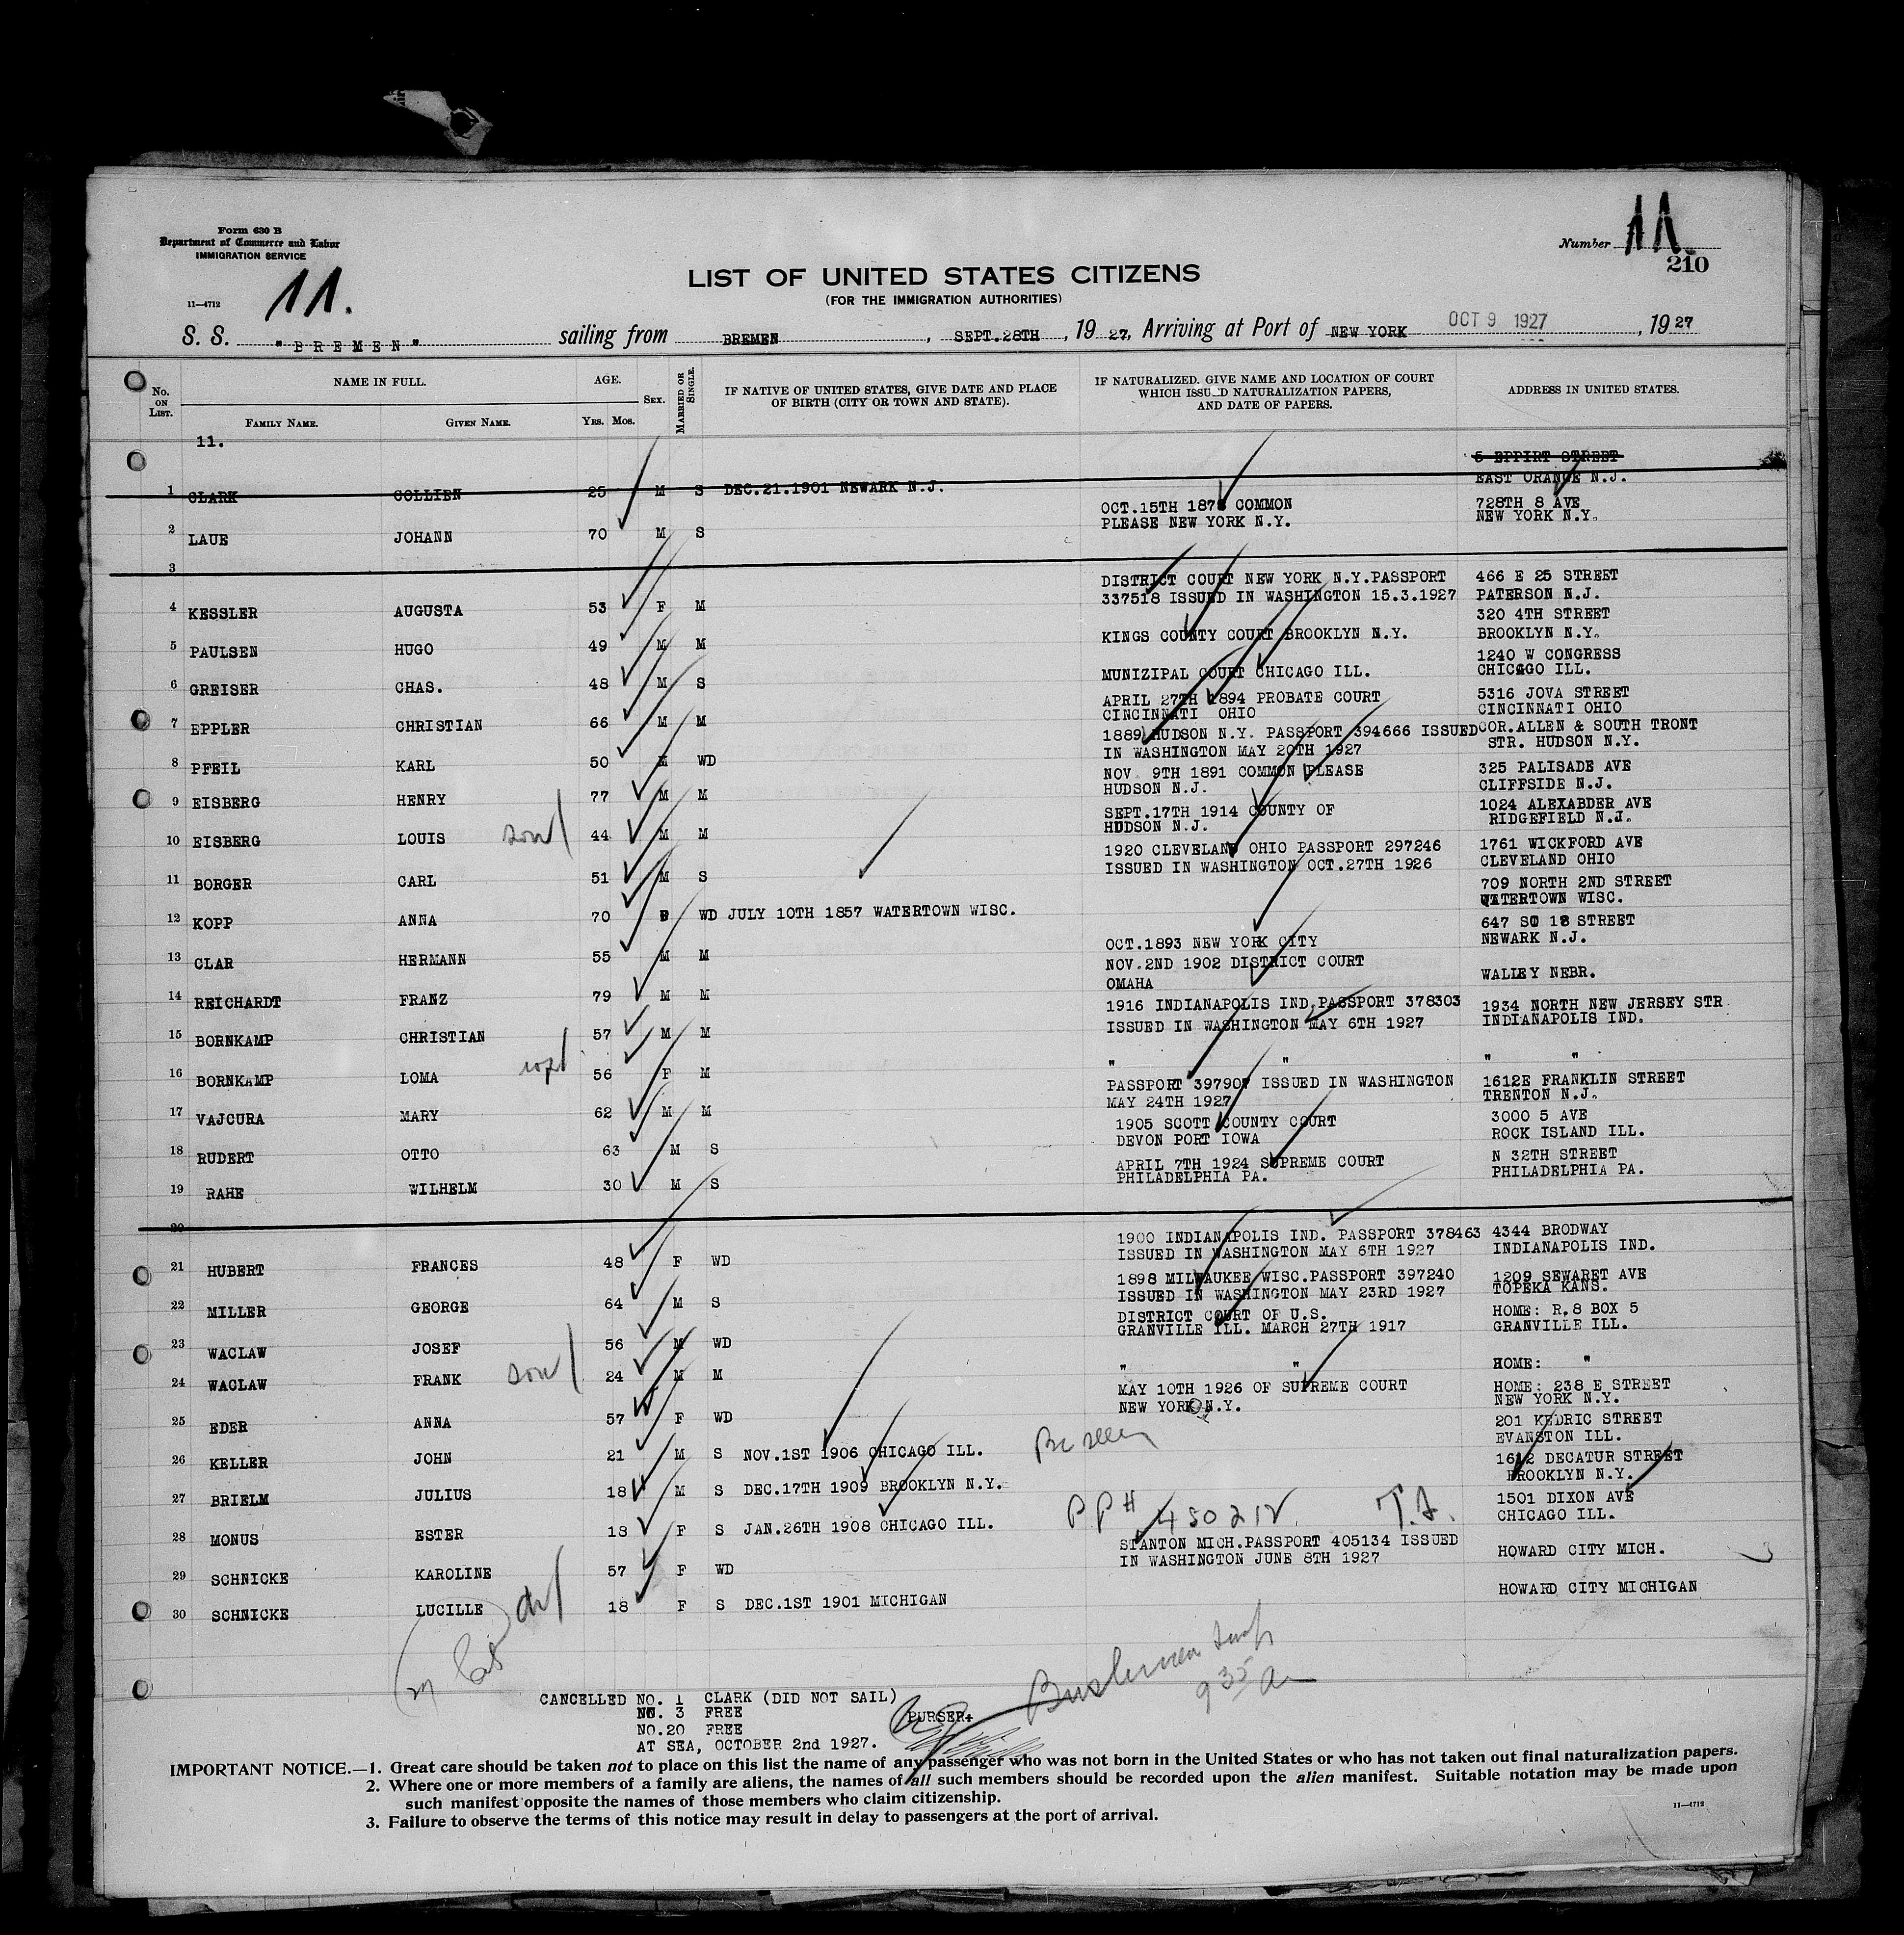 Form 630 B
Department of Commerce and Labor
IMMIGRATION SERVICE
11—4712
11.
Number 11.
210
LIST OF UNITED STATES CITIZENS
(FOR THE IMMIGRATION AUTHORITIES)
S. S. "BREMEN" sailing from BREMEN, SEPT.28TH, 1927, Arriving at Port of NEW YORK OCT 9 1927, 1927
No. ON LIST. NAME IN FULL. FAMILY NAME. GIVEN NAME. AGE. YRS. MOS. SEX. MARRIED OR SINGLE. IF NATIVE OF UNITED STATES, GIVE DATE AND PLACE OF BIRTH (CITY OR TOWN AND STATE). IF NATURALIZED, GIVE NAME AND LOCATION OF COURT WHICH ISSUED NATURALIZATION PAPERS, AND DATE OF PAPERS. ADDRESS IN UNITED STATES.
11.
5 EPPIRT STREET
1 CLARK COLLIEN 25 M S DEC.21.1901 NEWARK N.J. EAST ORANGE N.J.
OCT.15TH 187 COMMON 728TH 8 AVE
PLEASE NEW YORK N.Y. NEW YORK N.Y.
2 LAUE JOHANN 70 M S
3
DISTRICT COURT NEW YORK N.Y.PASSPORT 466 E 25 STREET
4 KESSLER AUGUSTA 53 F M 337518 ISSUED IN WASHINGTON 15.3.1927 PATERSON N.J.
320 4TH STREET
5 PAULSEN HUGO 49 M M KINGS COUNTY COURT BROOKLYN N.Y. BROOKLYN N.Y.
1240 W CONGRESS
6 GREISER CHAS. 48 M S MUNIZIPAL COURT CHICAGO ILL. CHICAGO ILL.
APRIL 27TH 1894 PROBATE COURT 5316 JOVA STREET
7 EPPLER CHRISTIAN 66 M M CINCINNATI OHIO CINCINNATI OHIO
1889 HUDSON N.Y. PASSPORT 394666 ISSUED COR.ALLEN & SOUTH TRONT
8 PFEIL KARL 50 M WD IN WASHINGTON MAY 20TH 1927 STR. HUDSON N.Y.
NOV. 9TH 1891 COMMON PLEASE 325 PALISADE AVE
9 EISBERG HENRY 77 M M HUDSON N.J. CLIFFSIDE N.J.
SEPT.17TH 1914 COUNTY OF 1024 ALEXABDER AVE
10 EISBERG LOUIS son 44 M M HUDSON N.J. RIDGEFIELD N.J.
1920 CLEVELAND OHIO PASSPORT 297246 1761 WICKFORD AVE
11 BORGER CARL 51 M S ISSUED IN WASHINGTON OCT.27TH 1926 CLEVELAND OHIO
709 NORTH 2ND STREET
12 KOPP ANNA 70 F WD JULY 10TH 1857 WATERTOWN WISC. WATERTOWN WISC.
647 SO 18 STREET
13 CLAR HERMANN 55 M M OCT.1893 NEW YORK CITY NEWARK N.J.
NOV.2ND 1902 DISTRICT COURT
14 REICHARDT FRANZ 79 M M OMAHA WALLEY NEBR.
1916 INDIANAPOLIS IND.PASSPORT 378303 1934 NORTH NEW JERSEY STR
15 BORNKAMP CHRISTIAN 57 M M ISSUED IN WASHINGTON MAY 6TH 1927 INDIANAPOLIS IND.
16 BORNKAMP LOMA wf 56 F M " " " "
PASSPORT 397907 ISSUED IN WASHINGTON 1612E FRANKLIN STREET
17 VAJCURA MARY 62 M M MAY 24TH 1927 TRENTON N.J.
1905 SCOTT COUNTY COURT 3000 5 AVE
18 RUDERT OTTO 63 M S DEVON PORT IOWA ROCK ISLAND ILL.
APRIL 7TH 1924 SUPREME COURT N 32TH STREET
19 RAHE WILHELM 30 M S PHILADELPHIA PA. PHILADELPHIA PA.
20
1900 INDIANAPOLIS IND. PASSPORT 378463 4344 BRODWAY
21 HUBERT FRANCES 48 F WD ISSUED IN WASHINGTON MAY 6TH 1927 INDIANAPOLIS IND.
1898 MILWAUKEE WISC.PASSPORT 397240 1209 SEWARET AVE
22 MILLER GEORGE 64 M S ISSUED IN WASHINGTON MAY 23RD 1927 TOPEKA KANS.
DISTRICT COURT OF U.S. HOME: R.8 BOX 5
23 WACLAW JOSEF 56 M WD GRANVILLE ILL. MARCH 27TH 1917 GRANVILLE ILL.
24 WACLAW FRANK son 24 M M " " HOME: "
MAY 10TH 1926 OF SUPREME COURT HOME: 238 E STREET
25 EDER ANNA 57 F WD NEW YORK N.Y. NEW YORK N.Y.
201 KEDRIC STREET
26 KELLER JOHN 21 M S NOV.1ST 1906 CHICAGO ILL. EVANSTON ILL.
1612 DECATUR STREET
27 BRIELM JULIUS 18 M S DEC.17TH 1909 BROOKLYN N.Y. BROOKLYN N.Y.
1501 DIXON AVE
28 MONUS ESTER 18 F S JAN.26TH 1908 CHICAGO ILL. PP# 450212 CHICAGO ILL.
STANTON MICH.PASSPORT 405134 ISSUED
29 SCHNICKE KAROLINE 57 F WD IN WASHINGTON JUNE 8TH 1927 HOWARD CITY MICH.
30 SCHNICKE LUCILLE 18 F S DEC.1ST 1901 MICHIGAN HOWARD CITY MICHIGAN
9 35 a
CANCELLED NO. 1 CLARK (DID NOT SAIL)
NO. 3 FREE PURSER.
NO.20 FREE
AT SEA, OCTOBER 2nd 1927.
IMPORTANT NOTICE.—1. Great care should be taken not to place on this list the name of any passenger who was not born in the United States or who has not taken out final naturalization papers.
2. Where one or more members of a family are aliens, the names of all such members should be recorded upon the alien manifest. Suitable notation may be made upon
such manifest opposite the names of those members who claim citizenship.
3. Failure to observe the terms of this notice may result in delay to passengers at the port of arrival.
11—4712